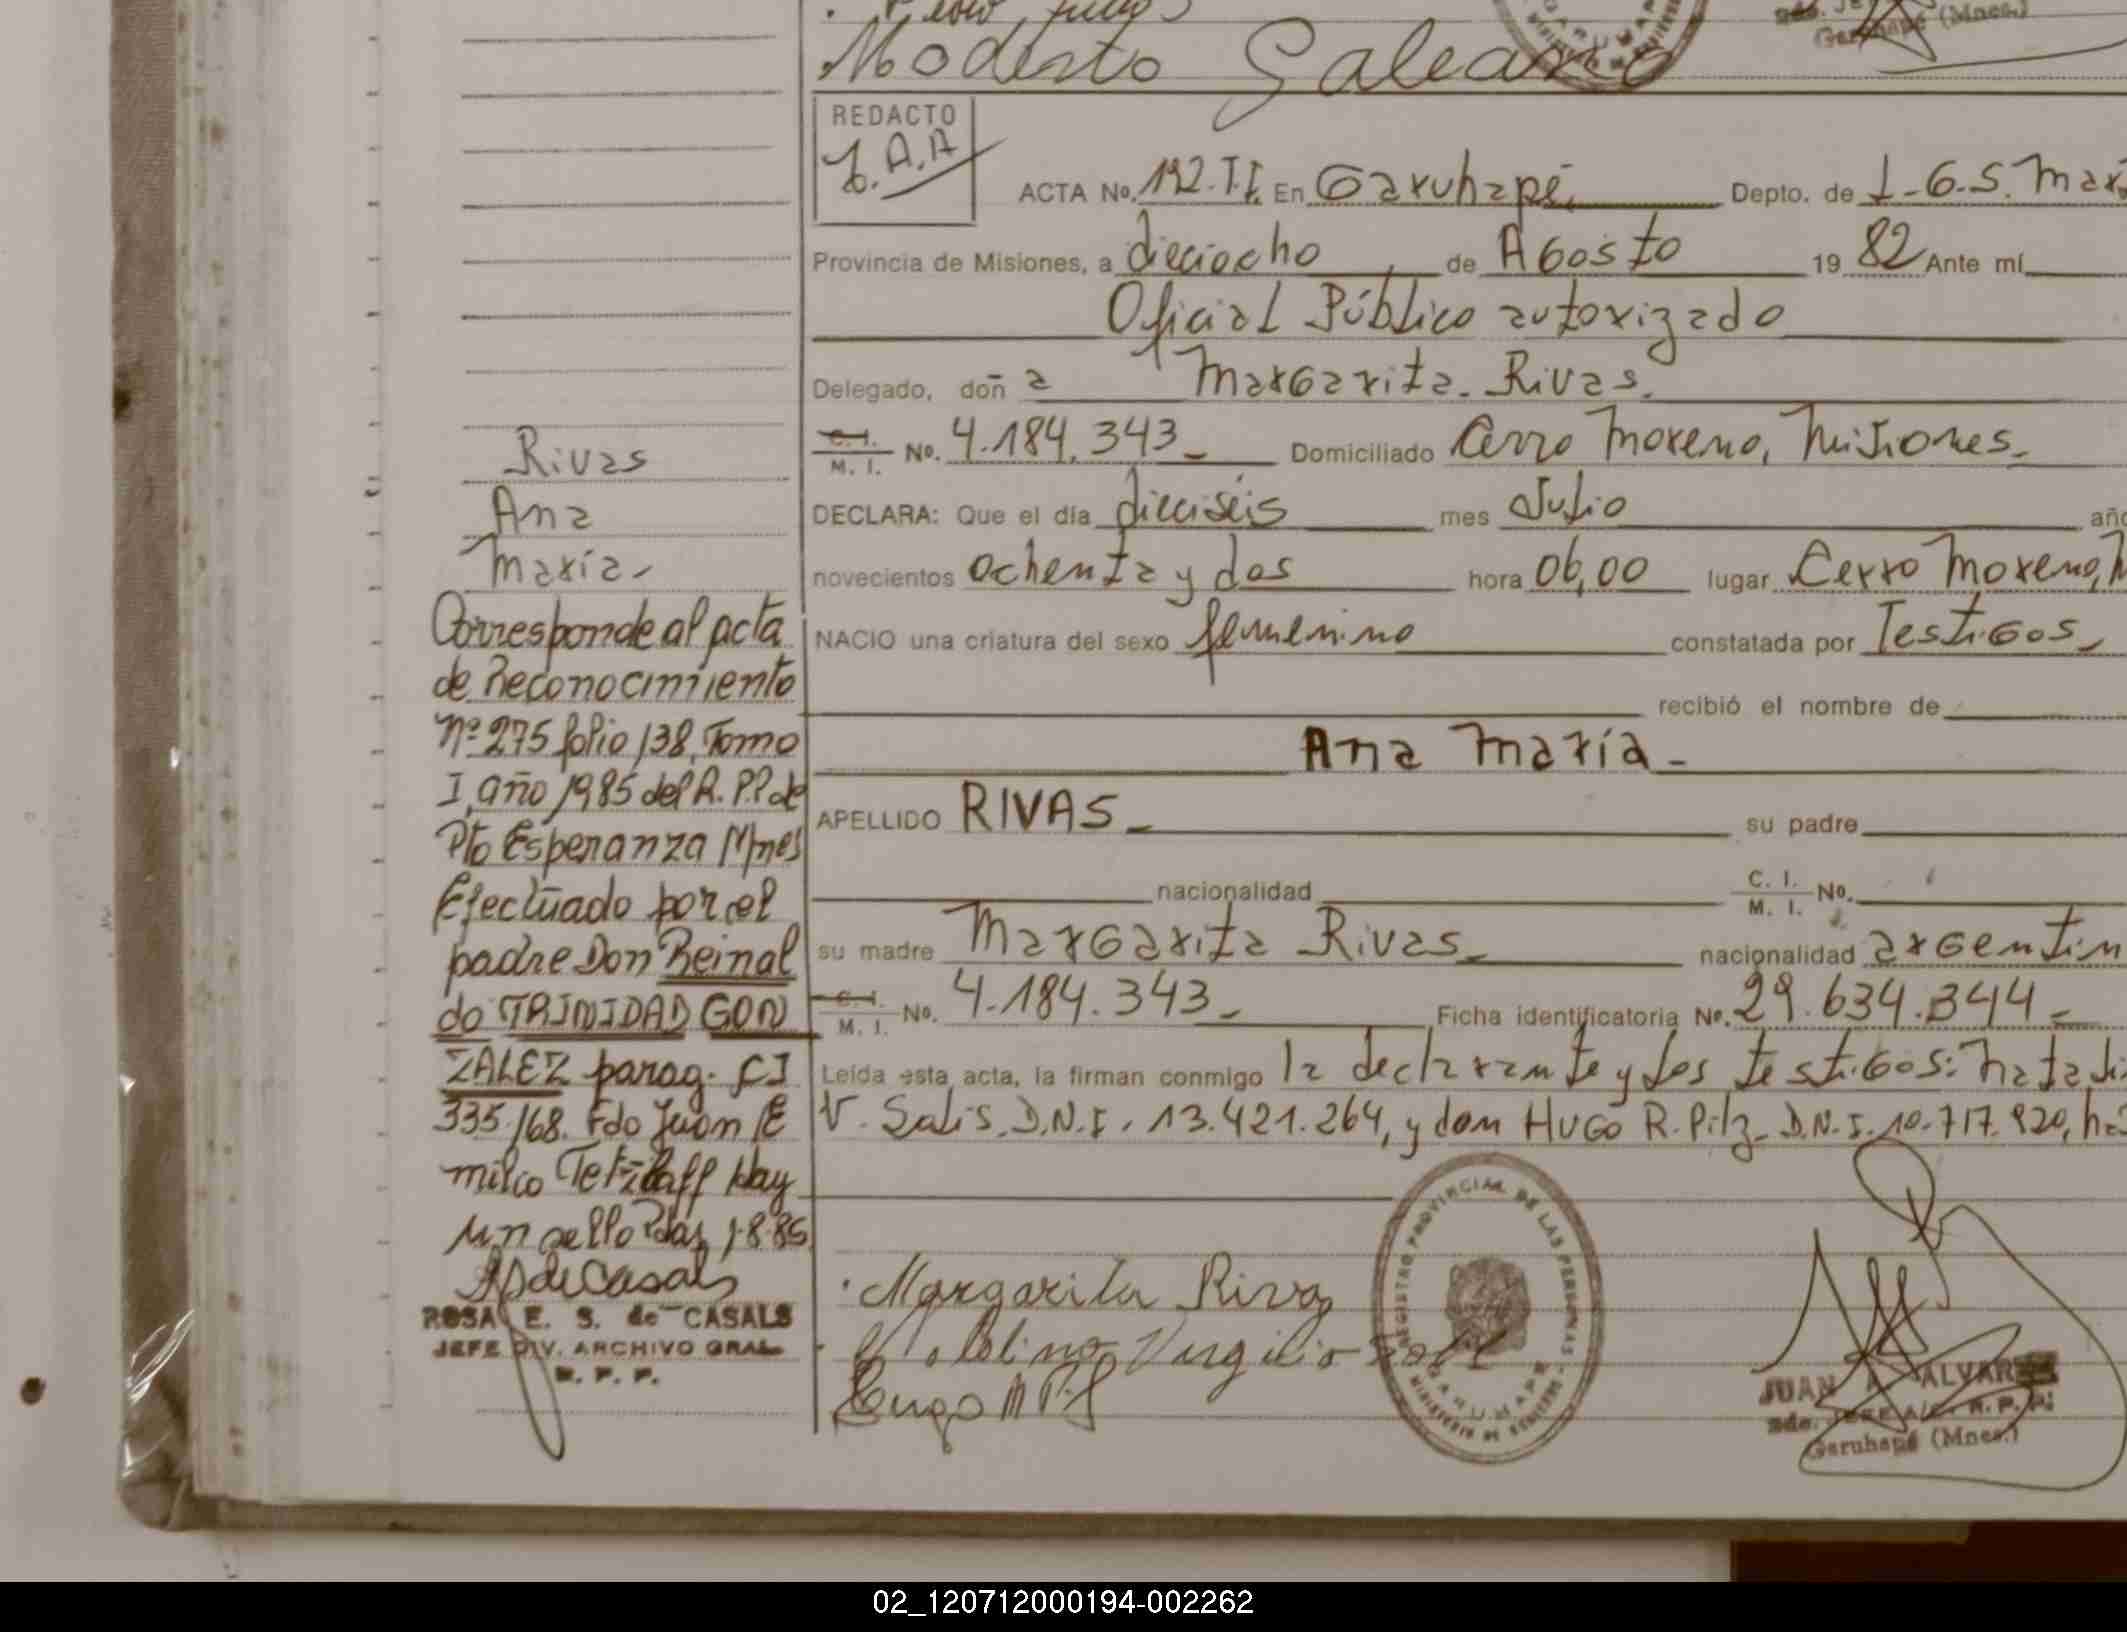 Modesto Galeano
Garuhapé (Mnes.)
REDACTO
J.A.A
ACTA No. 192.T.I. En Garuhapé, Depto. de L-G.S. Mar
Provincia de Misiones, a dieciocho de Agosto 1982 Ante mí
Oficial Público autorizado
Delegado, doña Margarita Rivas.
C. I.
M. I. No. 4.184.343_ Domiciliado Cerro Moreno, Misiones_
DECLARA: Que el día dieciséis mes Julio año
novecientos ochenta y dos hora 06,00 lugar Cerro Moreno, M
NACIO una criatura del sexo femenino constatada por Testigos_
recibió el nombre de
Ana María_
APELLIDO RIVAS_ su padre
nacionalidad C. I.
M. I. No.
su madre Margarita Rivas_ nacionalidad argentin
C. I.
M. I. No. 4.184.343_ Ficha identificatoria No. 29.634.344_
Leída esta acta, la firman conmigo la declarante y los testigos:
V. Solis. D.N.I. 13.421.264, y don HUGO R. Pilz_ D.N.I. 10.717.920,
Rivas
Ana
María
Corresponde al acta
de Reconocimiento
Nº 275 folio 138, Tomo
I, año 1985 del R. P.P. de
Pto Esperanza Mnes
Efectuado por el
padre Don Reinal
do TRINIDAD GON
ZALEZ parag. CI
335.168. Fdo Juan E
milio Tetzlaff Hay
un sello Pdas, 1-8-85
RSdeCasals
ROSA E. S. de CASALS
JEFE DIV. ARCHIVO GRAL
R. P. P.
Margarita Rivas
Virgilio
Hugo
REGISTRO PROVINCIAL DE LAS PERSONAS
GARUHAPE
MINISTERIO DE
JUAN A. ALVAREZ
Bdo. JEFE A/C. R. P. P.
Garuhapé (Mnes.)
02_120712000194-002262